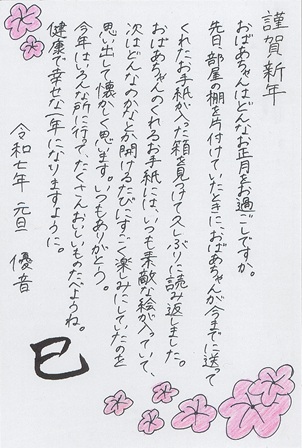 謹賀新年
おばあちゃんはどんなお正月をお過ごしですか。
先日、部屋の棚を片付けていたときに、おばあちゃんが今までに送って
くれたお手紙が入った箱を見つけて久しぶりに読み返しました。
おばあちゃんのくれるお手紙には、いつも素敵な絵が入っていて、
次はどんなのかなとか開けるたびにすごく楽しみにしていたのを
思い出して懐かしく思います。いつもありがとう。
今年はいろんな所に行って、たくさんおいしいものたべようね。
健康で幸せな一年になりますように。
令和七年 元旦 優音
巳